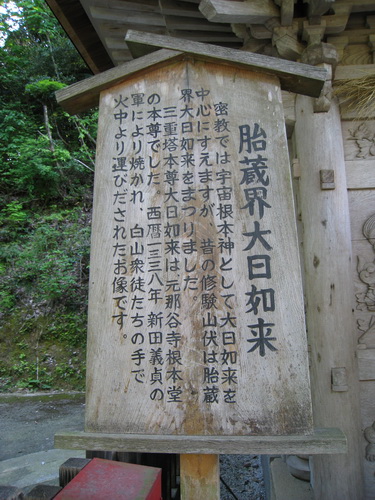 胎蔵界大日如来
密教では宇宙根本神として大日如来を
中心にすえますが、昔の修験山伏は胎蔵
界大日如来をまつりました。
三重塔本尊大日如来は元那谷寺根本堂
の本尊でした。西暦一三三八年 新田義貞の
軍により焼かれ 白山衆徒たちの手で
火中より運びだされたお像です。